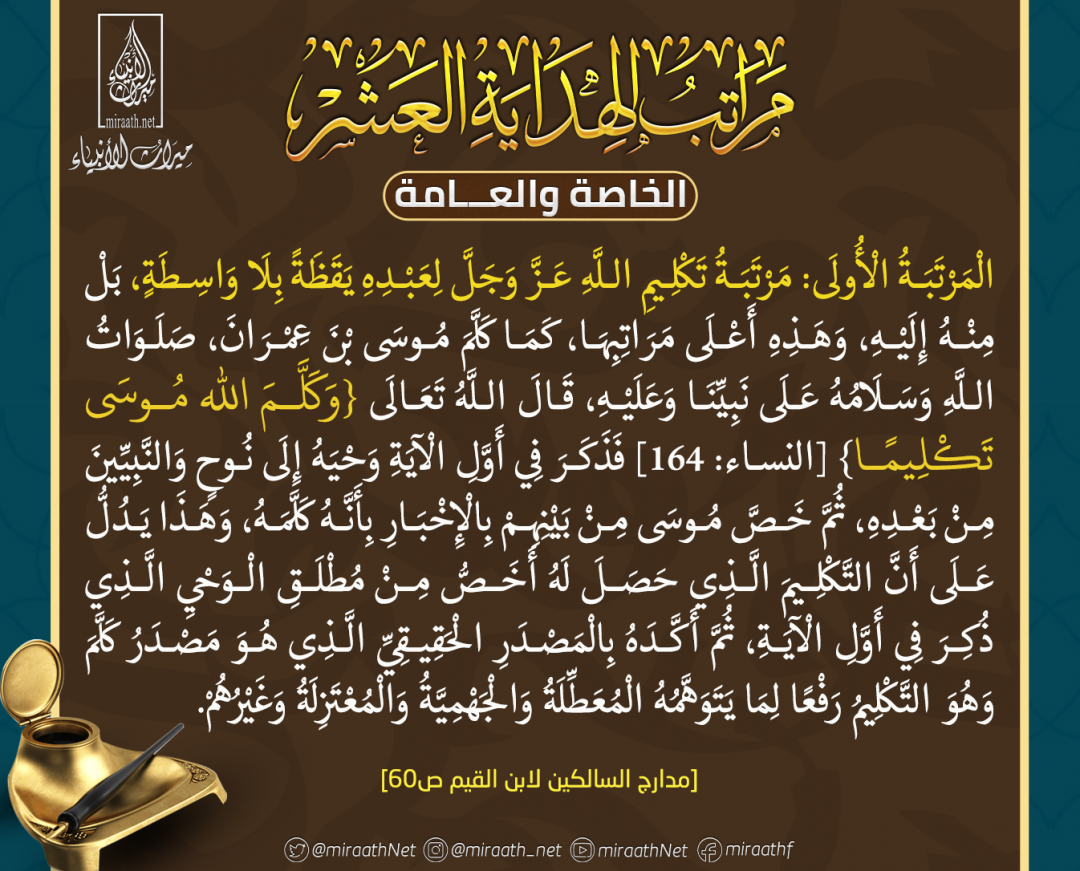 miraath.net
ميراث الأنبياء
مَرَاتِبُ الهِدَايَةِ العَشْرِ
الخاصة والعـــامة
الْمَرْتَبَةُ الْأُولَى: مَرْتَبَةُ تَكْلِيمِ اللَّهِ عَزَّ وَجَلَّ لِعَبْدِهِ يَقَظَةً بِلَا وَاسِطَةٍ، بَلْ
مِنْهُ إِلَيْهِ، وَهَذِهِ أَعْلَى مَرَاتِبِهَا، كَمَا كَلَّمَ مُوسَى بْنَ عِمْرَانَ، صَلَوَاتُ
اللَّهِ وَسَلَامُهُ عَلَى نَبِيِّنَا وَعَلَيْهِ، قَالَ اللَّهُ تَعَالَى {وَكَلَّمَ الله مُوسَى
تَكْلِيمًا} [النساء: 164] فَذَكَرَ فِي أَوَّلِ الْآيَةِ وَحْيَهُ إِلَى نُوحٍ وَالنَّبِيِّينَ
مِنْ بَعْدِهِ، ثُمَّ خَصَّ مُوسَى مِنْ بَيْنِهِمْ بِالْإِخْبَارِ بِأَنَّهُ كَلَّمَهُ، وَهَذَا يَدُلُّ
عَلَى أَنَّ التَّكْلِيمَ الَّذِي حَصَلَ لَهُ أَخَصُّ مِنْ مُطْلَقِ الْوَحْيِ الَّذِي
ذُكِرَ فِي أَوَّلِ الْآيَةِ، ثُمَّ أَكَّدَهُ بِالْمَصْدَرِ الْحَقِيقِيِّ الَّذِي هُوَ مَصْدَرُ كَلَّمَ
وَهُوَ التَّكْلِيمُ رَفْعًا لِمَا يَتَوَهَّمُهُ الْمُعَطِّلَةُ وَالْجَهْمِيَّةُ وَالْمُعْتَزِلَةُ وَغَيْرُهُمْ.
[مدارج السالكين لابن القيم ص60]
@miraathNet @miraath_net miraathNet miraathf